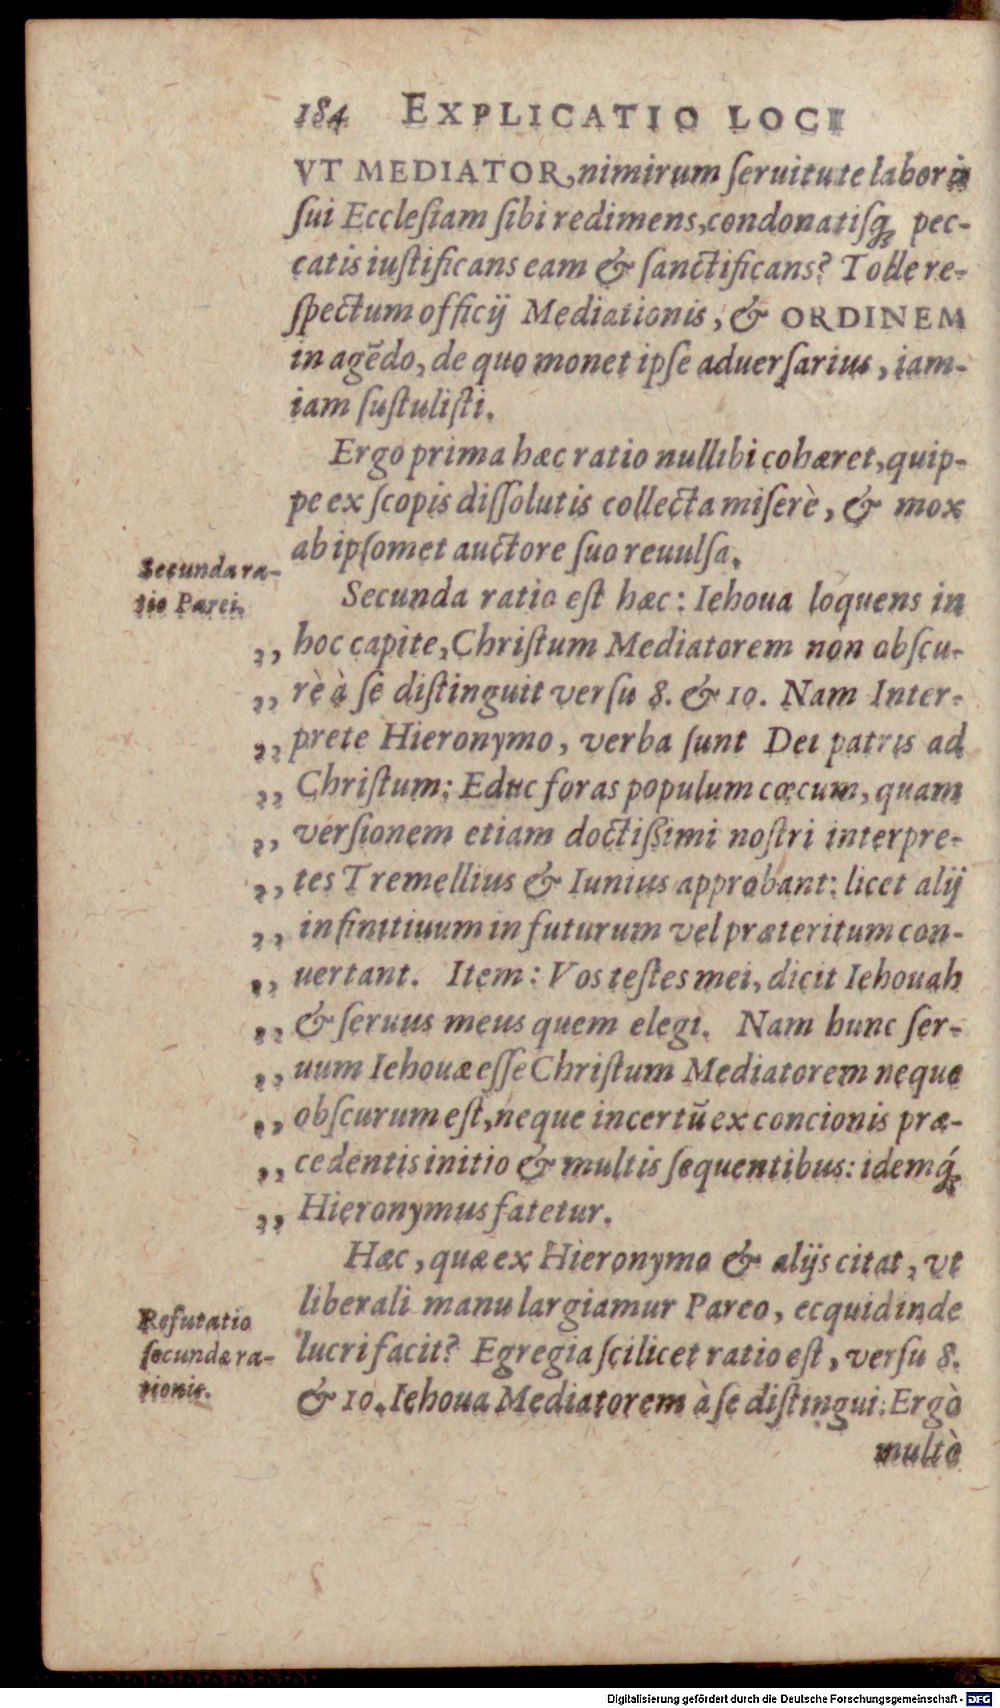 184 EXPLICATIO LOCI
VT MEDIATOR, nimirum ſeruitute laboris
ſui Eccleſiam ſibi redimens, condonatiſq; pec-
catis iuſtificans eam & ſanctificans? Tolle re-
ſpectum officij Mediationis, & ORDINEM
in agēdo, de quo monet ipſe aduerſarius, iam-
iam ſuſtuliſti.
Ergo prima hæc ratio nullibi cohæret, quip-
pe ex ſcopis diſſolutis collecta miſerè, & mox
ab ipſomet auctore ſuo reuulſa.
Secunda ra-
tio Parei.
Secunda ratio eſt hæc: Iehoua loquens in
,, hoc capite, Chriſtum Mediatorem non obſcu-
,, rè à ſe diſtinguit verſu 8. & 10. Nam Inter-
,, prete Hieronymo, verba ſunt Dei patris ad
,, Chriſtum: Educ foras populum cœcum, quam
,, verſionem etiam doctißimi noſtri interpre-
,, tes Tremellius & Iunius approbant: licet alij
,, infinitiuum in futurum vel præteritum con-
,, uertant. Item: Vos teſtes mei, dicit Iehouah
,, & ſeruus meus quem elegi. Nam hunc ſer-
,, uum Iehouæ eſſe Chriſtum Mediatorem neque
,, obſcurum eſt, neque incertū ex concionis præ-
,, cedentis initio & multis ſequentibus: idemq́;
,, Hieronymus fatetur.
Hæc, quæ ex Hieronymo & alijs citat, vt
liberali manu largiamur Pareo, ecquid inde
lucri facit? Egregia ſcilicet ratio eſt, verſu 8.
& 10. Iehoua Mediatorem à ſe diſtingui: Ergò
Refutatio
ſecundæ ra-
tionis.
multò
Digitalisierung gefördert durch die Deutsche Forschungsgemeinschaft - DFG